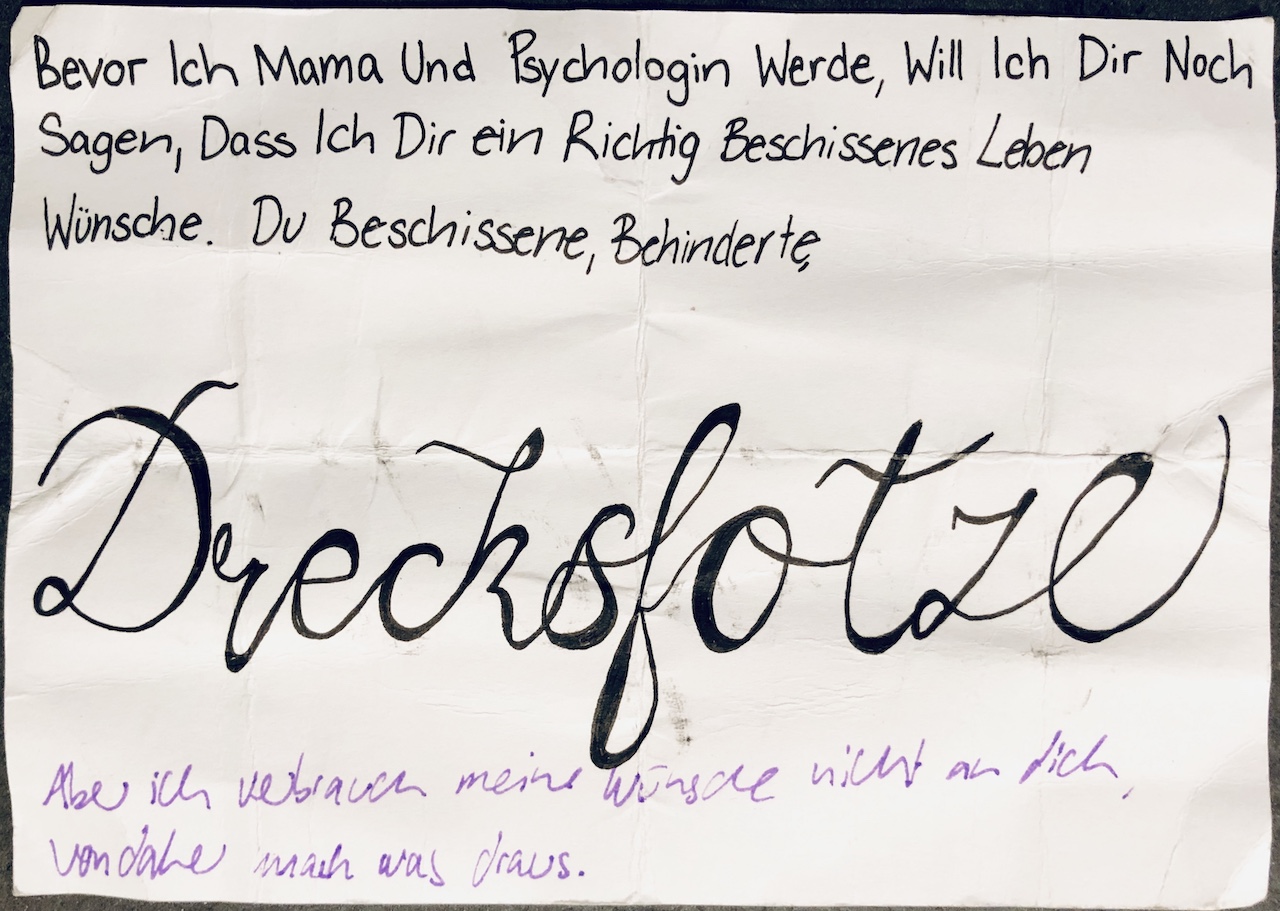 Bevor Ich Mama Und Psychologin Werde, Will Ich Dir Noch
Sagen, Dass Ich Dir ein Richtig Beschissenes Leben
Wünsche. Du Beschissene, Behinderte,
Drecksfotze
Aber ich verbrauch meine Wünsche nicht an dich,
von daher mach was draus.